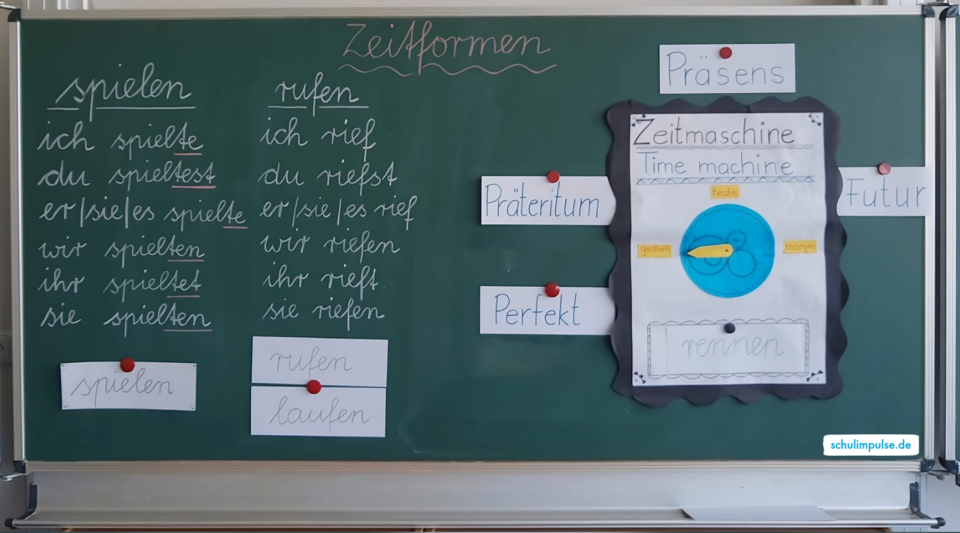 Zeitformen
spielen
ich spielte
du spieltest
er/sie/es spielte
wir spielten
ihr spieltet
sie spielten
spielen
rufen
ich rief
du riefst
er/sie/es rief
wir riefen
ihr rieft
sie riefen
rufen
laufen
Präsens
Präteritum
Perfekt
Zeitmaschine
Time machine
heute
gestern
morgen
rennen
Futur
schulimpulse.de